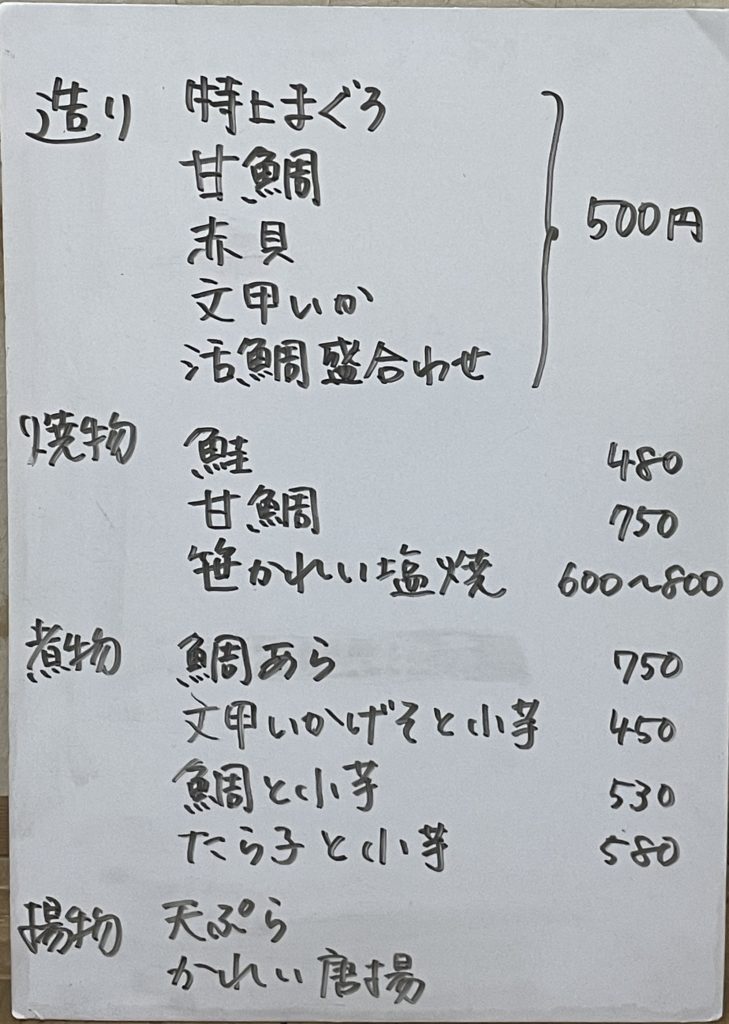 造り 特上まぐろ
甘鯛
赤貝 500円
文甲いか
活鯛盛合わせ
焼物 鮭 480
甘鯛 750
笹かれい塩焼 600〜800
煮物 鯛あら 750
文甲いかげそと小芋 450
鯛と小芋 530
たら子と小芋 580
揚物 天ぷら
かれい唐揚